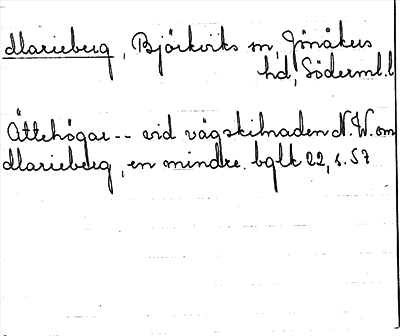 Marieberg, Björkviks sn, Jönåkers
hd, Söderml.l
Ättehögar -- vid vägskilnaden N.W. om
Marieberg, en mindre. bglk 22, s. 57